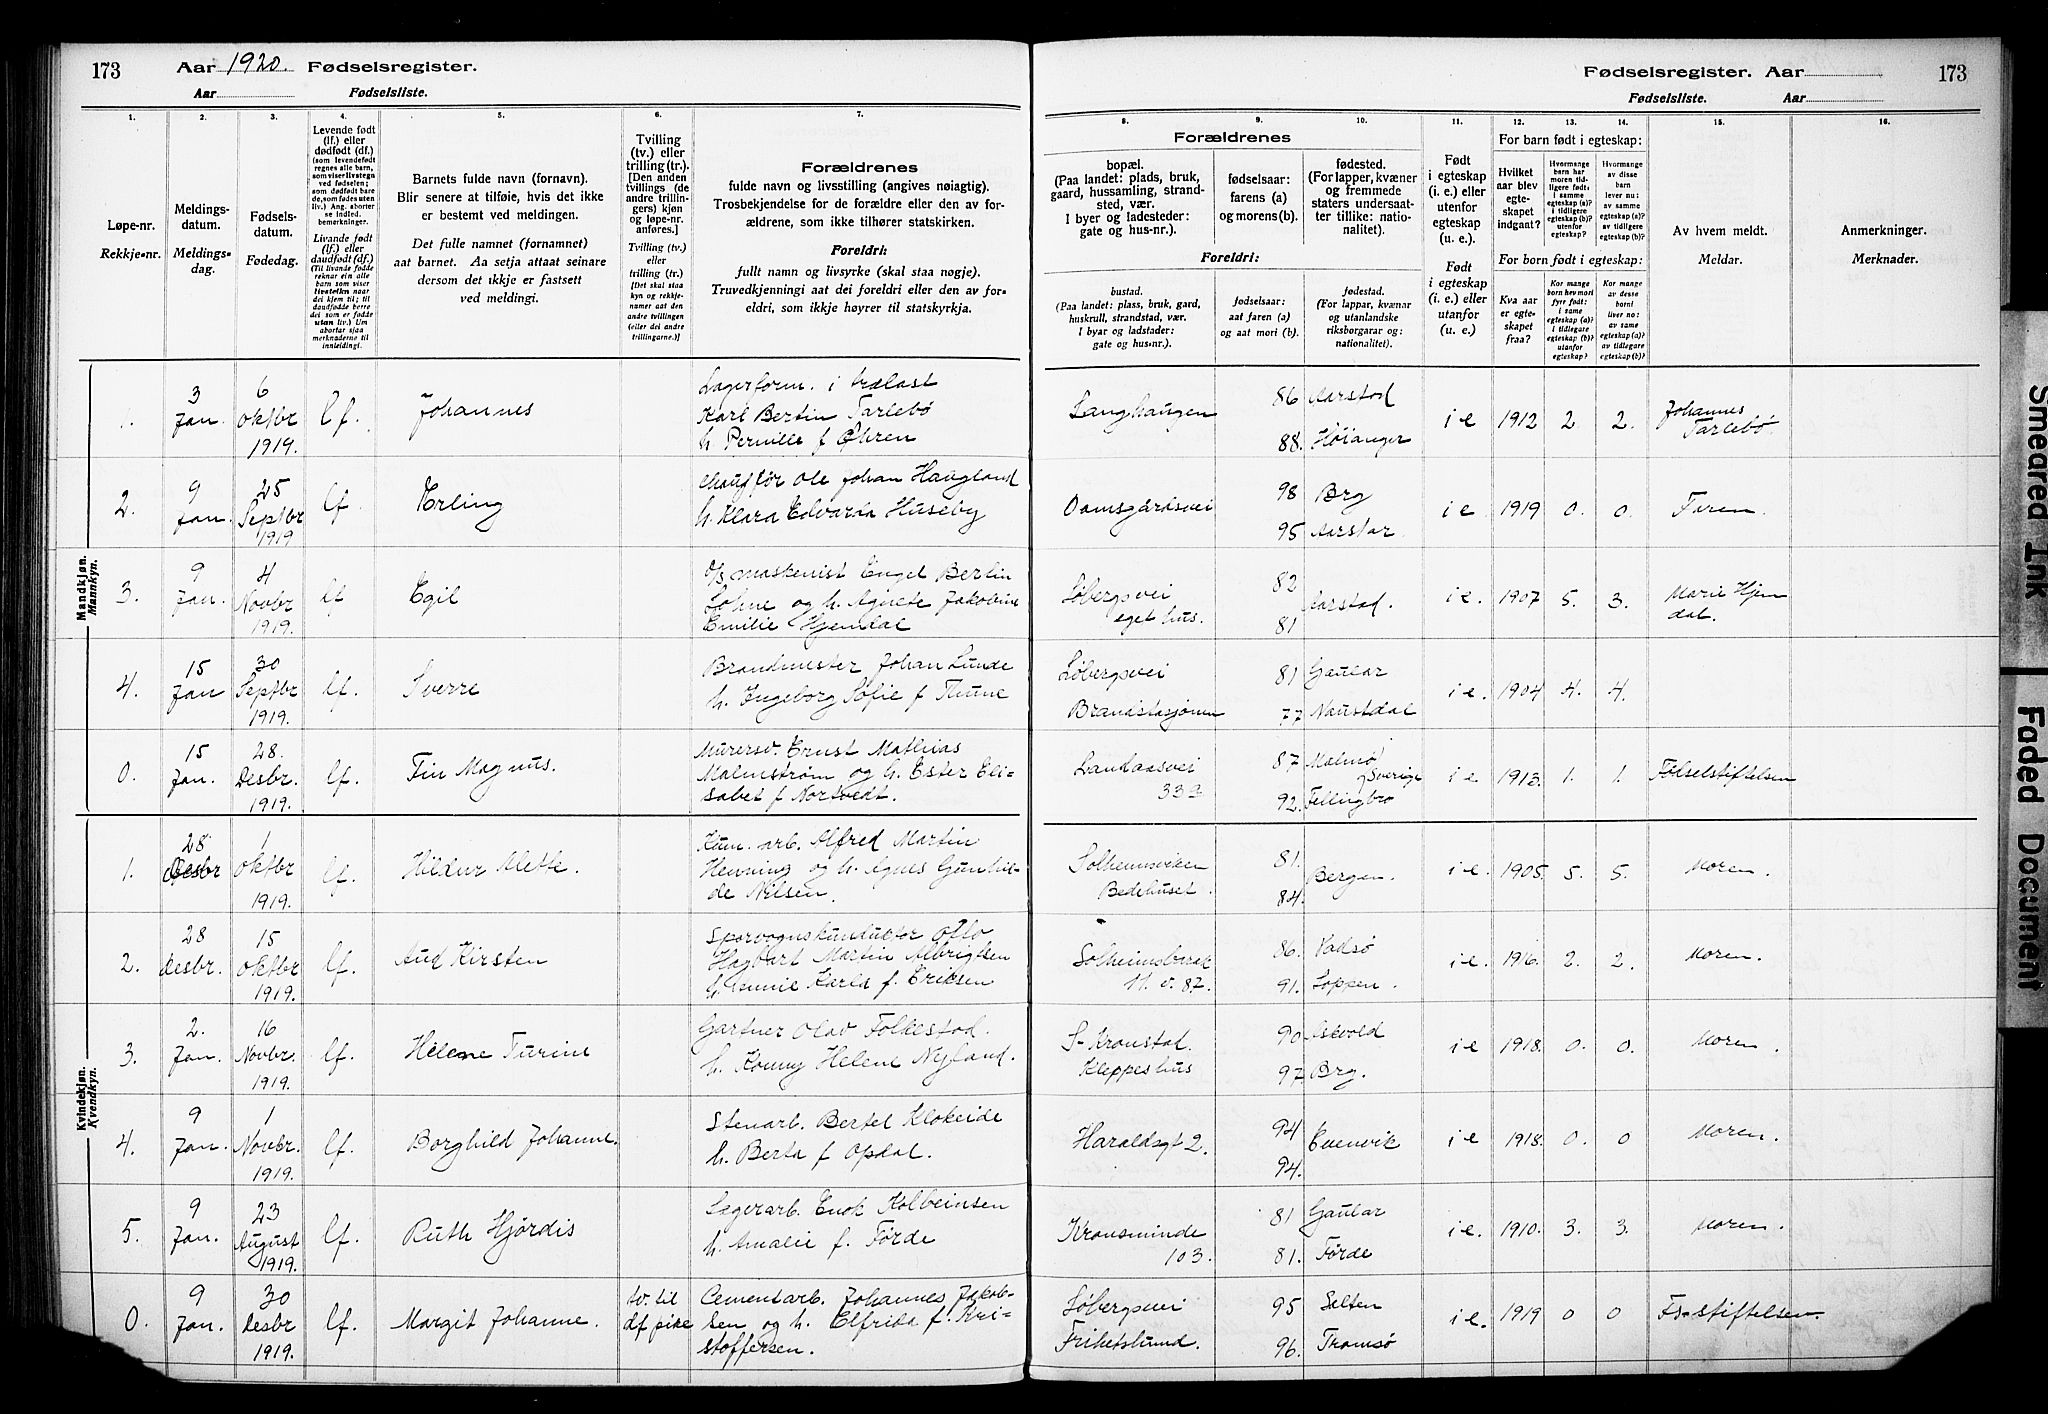 173 Aar 1920. Fødselsregister.
Aar Fødselsliste.
Fødselsregister. Aar 173
Fødselsliste. Aar
1. 2. 3. 4. 5. 6. 7. 8. 9. 10. 11. 12. 13. 14. 15. 16.
Løpe-nr.
Rekkje-nr.
Meldings-
datum.
Meldings-
dag.
Fødsels-
datum.
Fødedag.
Levende født
(lf.) eller
dødfødt (df.)
(som levendefødt
regnes alle barn,
som viser livstegn
ved fødselen;
som dødfødt bare
de, som fødes uten
liv.) Ang. aborter
se indled.
bemerkninger.
Livande født
(lf.) eller
daudfødt (df.)
(Til livande fødde
reknar ein alle
born som viser
livsteikn naar
dei kjem til; til
daudfødde berre
dei som er fødde
utan liv.) Um
abortar sjaa
merknaderne til
innleiding!
Barnets fulde navn (fornavn).
Blir senere at tilføie, hvis det ikke
er bestemt ved meldingen.
Det fulle namnet (fornamnet)
aat barnet. Aa setja attaat seinare
dersom det ikkje er fastsett
ved meldingi.
Tvilling
(tv.) eller
trilling (tr.).
[Den anden
tvillings (de
andre trillin-
gers) kjøn
og løpe-nr.
anføres.]
Tvilling (tv.)
eller
trilling (tr.)
[Det skal staa
kyn og rekkje-
numer aat den
andre tvillingen
(eller dei andre
trillingarne.)]
Forældrenes
fulde navn og livsstilling (angives nøiagtig).
Trosbekjendelse for de forældre eller den av for-
ældrene, som ikke tilhører statskirken.
Foreldri:
fullt namn og livsyrke (skal staa nøgje).
Truvedkjenningi aat dei foreldri eller den av for-
eldri, som ikkje høyrer til statskyrkja.
Forældrenes
bopæl.
(Paa landet: plads, bruk,
gaard, hussamling, strand-
sted, vær.
I byer og ladesteder:
gate og hus-nr.).
fødselsaar:
farens (a)
og morens (b).
fødested.
(For lapper, kvæner
og fremmede
staters undersaat-
ter tillike: natio-
nalitet).
Foreldri:
bustad.
(Paa landet: plass, bruk, gard,
huskrull, strandstad, vær.
I byar og ladstader:
gate og hus-nr.).
fødselsaar:
aat faren (a)
og aat mori (b).
fødestad.
(For lappar, kvænar
og utanlandske
riksborgarar og:
nationalitet).
Født
i egteskap
(i. e.) eller
utenfor
egteskap
(u. e.)
Født
i egteskap
(i. e.) eller
utanfor
(u. e.)
For barn født i egteskap:
Hvilket
aar blev
egte-
skapet
indgant?
Hvormange
barn har
moren tid-
ligere født:
i samme
egteskap (a)?
i tidligere
egteskap (b)?
utenfor
egteskap?
Hvormange
av disse
barn
lever nu:
av samme
egteskap (a)?
av tidligere
egteskap (b)?
For born født i egteskap:
Kva aar
er egte-
skapet
fraa?
Kor mange
born hev mori
fyrr født:
i same
egteskap (a)?
i tidlegare
egteskap (b)?
utanfor
egteskap?
Kor mange
av desse
borni
liver no:
av same
egteskap (a)?
av tidlegare
egteskap (b)?
Av hvem meldt.
Meldar.
Anmerkninger.
Merknader.
Mandkjøn.
Mannkyn.
1. 3 Jan. 6 Oktbr 1919. lf. Johannes
Lagerform. i trælast
Karl Bertin Tarlebö
h. Pernille f Öhren
Langhaugen 86 Aarstad 88. Höianger i e 1912 2. 2. Johannes Tarlebö
2. 9 Jan. 25 Septbr 1919 lf. Erling
Chauffør Ole Johan Haugland
h. Klara Edvarda Huseby
Damsgårdsvei 98 Brg 95 Aarstad. i e 1919 0. 0. Faren.
3. 9 Jan. 4 Novbr 1919. lf Egil
maskenist Engel Bertin
Lohne og h. Agnete Jakobine
Emilie Hjemdal
Löbergsvei eget hus. 82 81 Aarstad. i e. 1907 5. 3. Marie Hjem dal.
4. 15 Jan 30 Septbr 1919. lf. Sverre
Brandmester Johan Lunde
h. Ingeborg Sofie f Thune
Löbergsvei Brandstasjonen 81 Gaular 77 Naustdal i e. 1904 4. 4.
0. 15 Jan. 28. Desbr. 1919. lf. Finn Magnus.
Murersv. Ernst Mathias
Malmström og h. Ester Eli-
sabet f Nortvedt.
Landaasvei 33 87 Malmö Sverige 92. Fellingbro i e 1913. 1. 1. Födselstiftelsen
Kvindekjøn.
Kvendkyn.
1. 28 Desbr 1 Oktbr 1919. lf. Hildur Mette.
Kum. arb. Alfred Martin
Henning og h. Agnes Gunhil-
de Nilsen.
Solheimsviken Bedehuset. 81. 84. Bergen. i e. 1905. 5. 5. Moren.
2. 28 Desbr. 15 Oktbr 1919. lf. Aud Kirsten
Sporvognskunduktör Otto
Hagbart Martin Albrigtsen
h. Jennie Karla f. Eriksen
Solheimsbarak 11. v. 87. 86. Vadsö 91. Loppen. i e. 1916. 2. 2. Moren.
3. 2. Jan. 16 Novbr. 1919. lf. Helene Turine
Gartner Olav Folkestad.
h. Konny Helene Nyland.
S-Kronstad. Kleppeshus 90. Askvold 97. Brg. i e 1918. 0. 0. Moren.
4. 9 Jan. 1 Novbr. 1919. lf. Borghild Johanne.
Stenarb. Bertel Klokeide
h. Berta f Opdal.
Haraldsgt 2. 94 94. Evenvik i e 1918. 0. 0 Moren.
5. 9 Jan. 23 August 1919. lf. Ruth Hjördis
Lagerarb. Enok Kolbeinsen
h. Amalie f. Förde
Kronsminde 103. 81 Gaular 81. Förde i e. 1910. 3. 3. Moren.
0. 9 Jan. 30 Desbr 1919. lf. Margit Johanne. tv. til df pike
Cementarb. Johannes Jakob-
sen og h. Elfrida f. Kri-
stoffersen.
Löbergsvei Frihetslund. 95 Salten 96. Tromsö i e. 1919 0 0 Fs-stiftelsen.
Smeared Ink
Faded Document